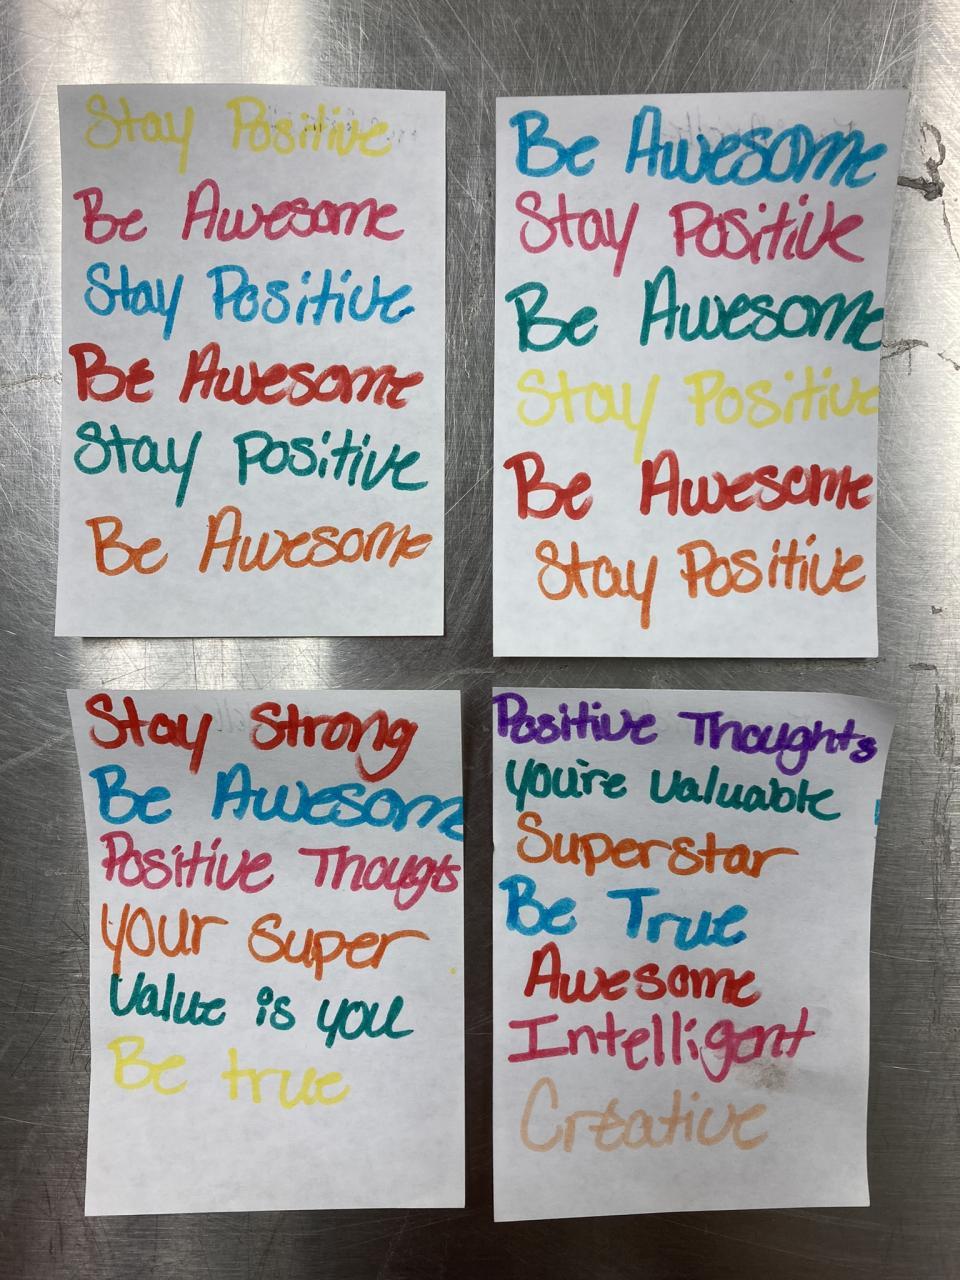 Stay Positive
Be Awesome
Stay Positive
Be Awesome
Stay Positive
Be Awesome
Be Awesome
Stay Positive
Be Awesome
Stay Positive
Be Awesome
Stay Positive
Stay Strong
Be Awesome
Positive Thougts
your Super
Value is you
Be true
Positive Thoughts
you're valuable
Superstar
Be True
Awesome
Intelligent
Creative